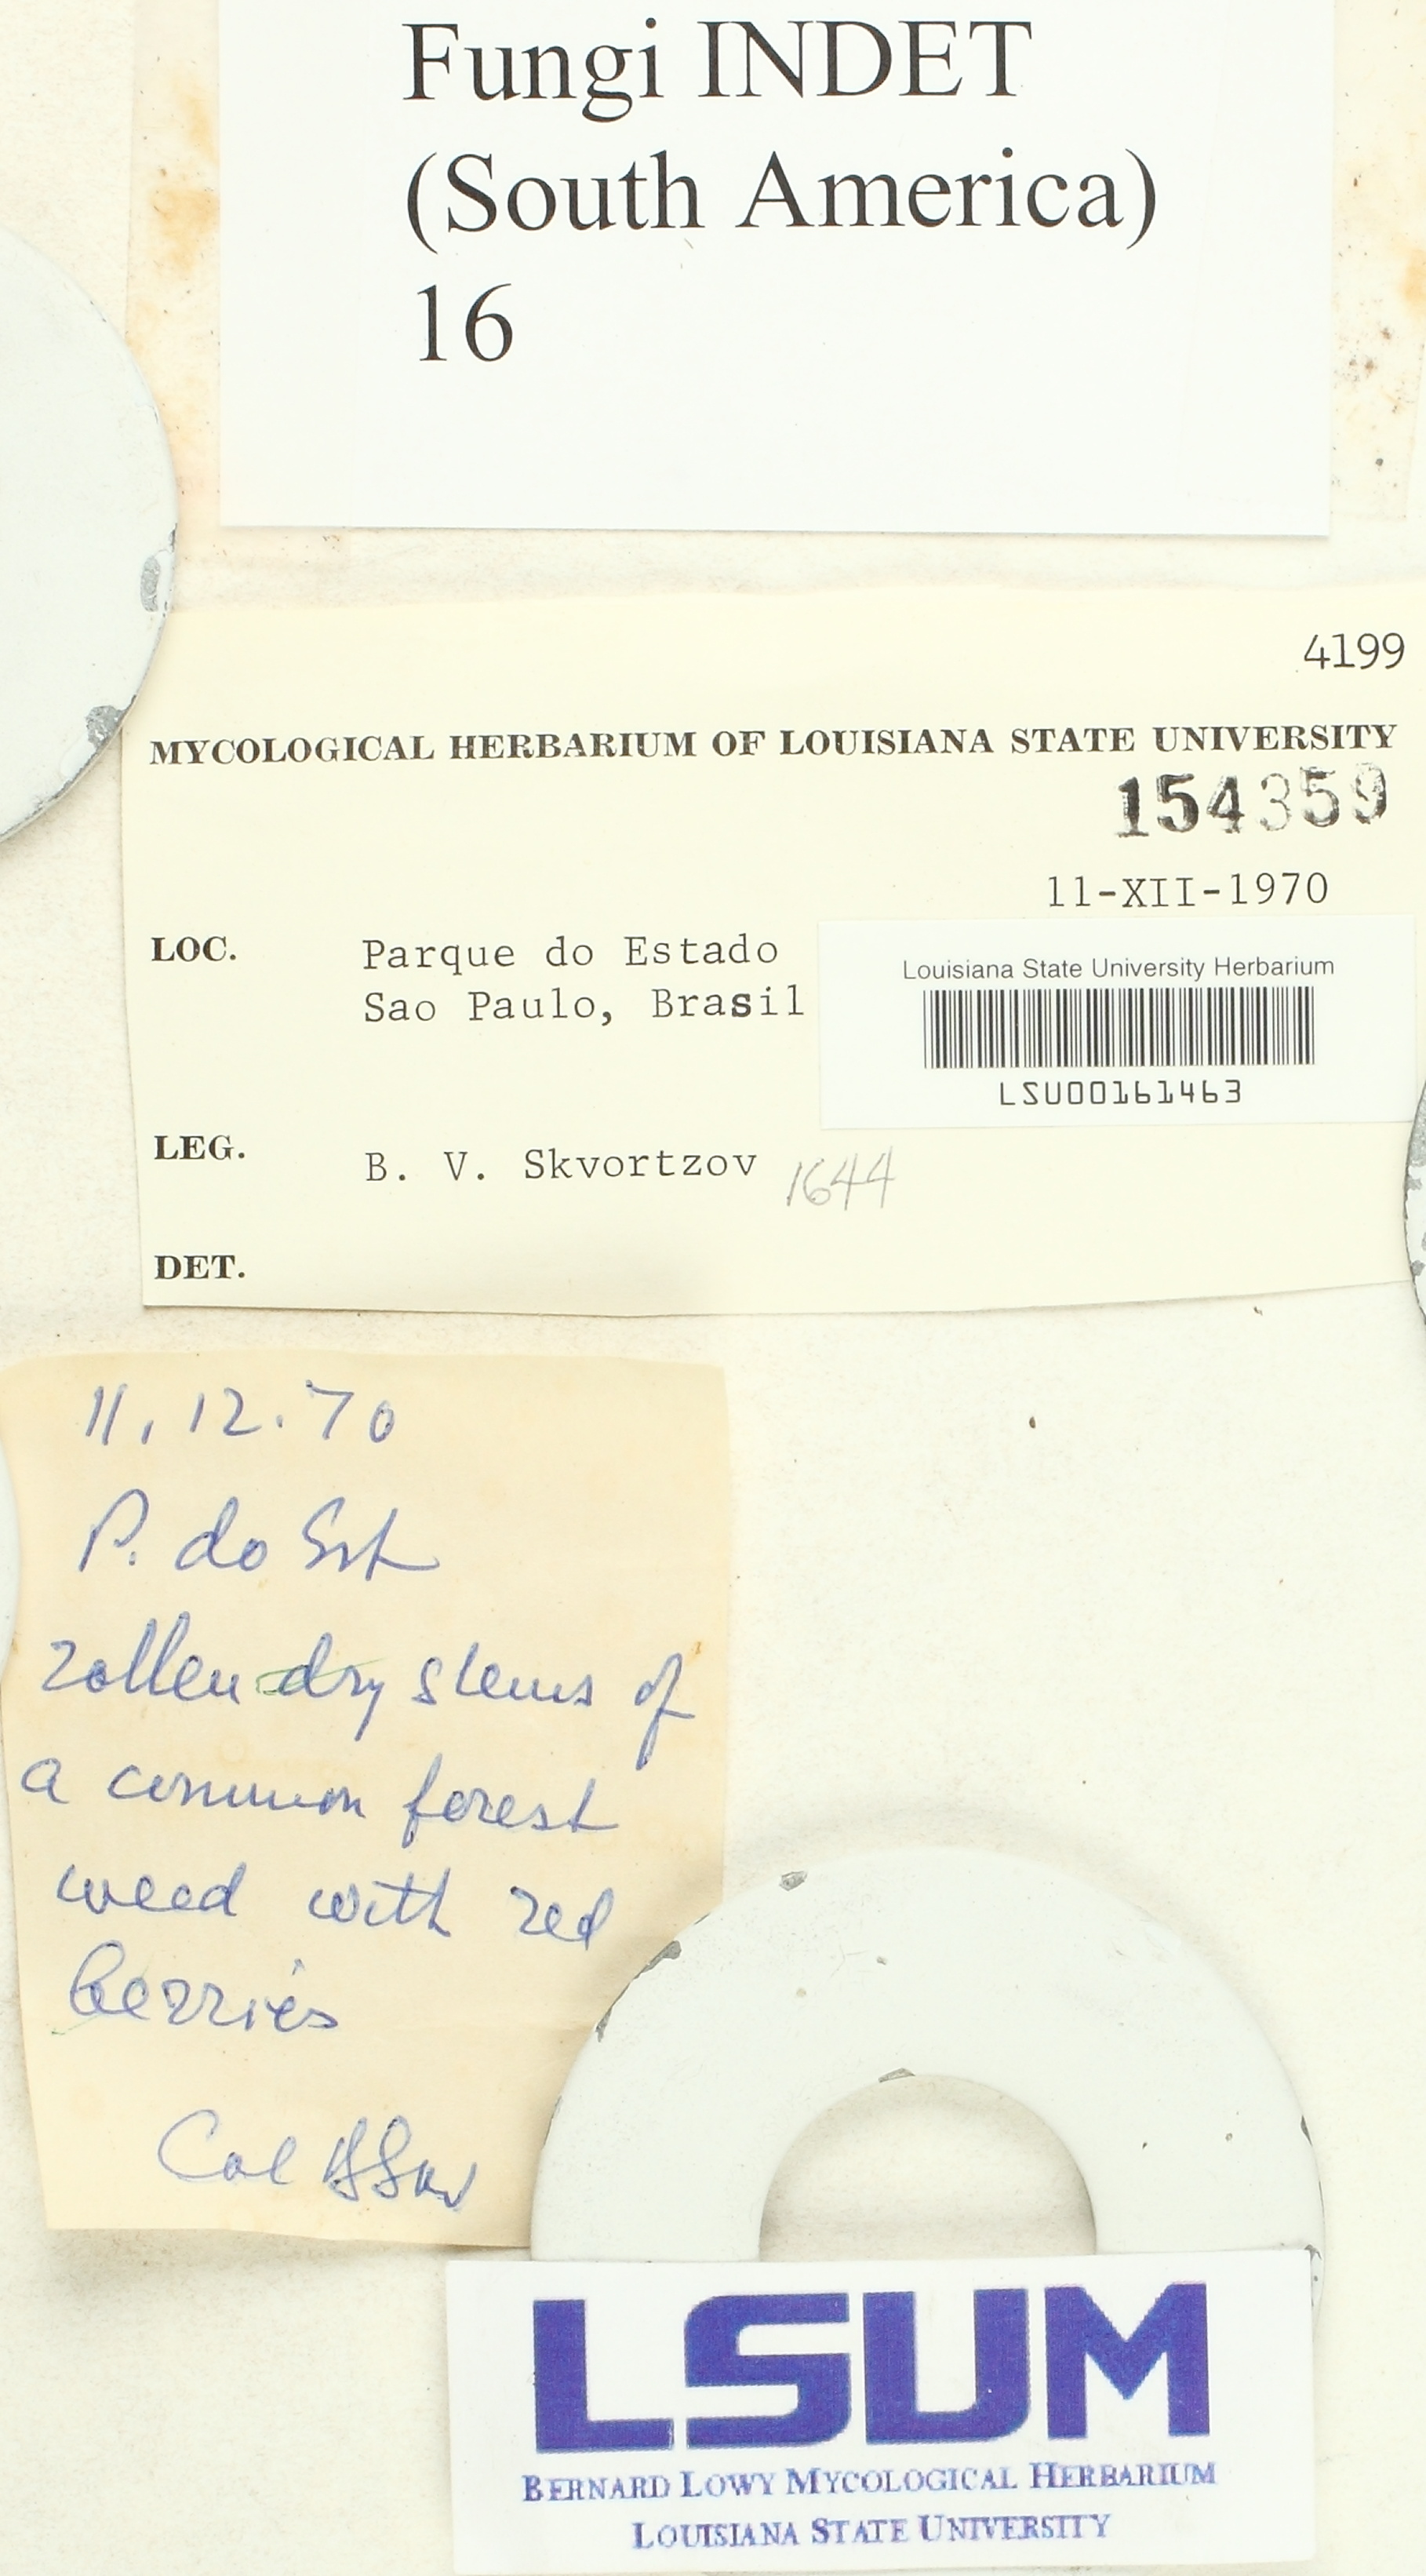 Fungi INDET
(South America)
16
4199
MYCOLOGICAL HERBARIUM OF LOUISIANA STATE UNIVERSITY
154359
11-XII-1970
LOC. Parque do Estado
Sao Paulo, Brasil
Louisiana State University Herbarium
LSU00161463
LEG. B. V. Skvortzov 1644
DET.
11.12.70
P. do Est
rotten dry stems of
a common forest
weed with red
berries
Col
LSUM
BERNARD LOWY MYCOLOGICAL HERBARIUM
LOUISIANA STATE UNIVERSITY